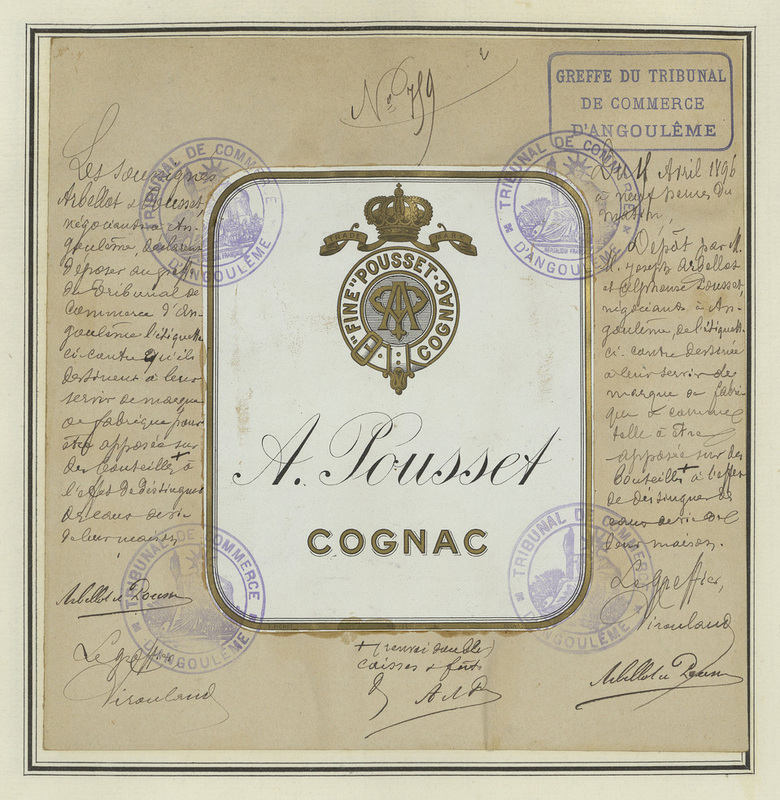 No 759
GREFFE DU TRIBUNAL
DE COMMERCE
D'ANGOULÊME
Les soussignés
Arbellot & Pousset
négociants à An-
goulême, déclarent
déposer au greffe
du Tribunal de
Commerce d'An-
goulême l'étiquette
ci-contre qu'ils
destinent à leur
servir de marque
de fabrique pour
être apposée sur
des bouteilles +
à l'effet de distinguer
des eaux de vie
de leur maison
Arbellot & Pousset
Le greffier
Virouland
TRADE MARK
"FINE" POUSSET·COGNAC
AP
A. Pousset
COGNAC
+ (renvoi double)
caisses & fûts
A & P
Du 11 Avril 1896
à neuf heures du
matin,
Dépôt par M.
M. Joseph Arbellot
et Alphonse Pousset,
négociants à An-
goulême, de l'étiquette
ci-contre destinée
à leur servir de
marque de fabri-
que & commerce
telle à être
apposée sur des
bouteilles + à l'effet
de distinguer les
eaux de vie de
leur maison.
Le Greffier,
Virouland
Arbellot & Pousset
TRIBUNAL DE COMMERCE
D'ANGOULÊME
TRIBUNAL DE COMMERCE
D'ANGOULÊME
TRIBUNAL DE COMMERCE
D'ANGOULÊME
TRIBUNAL DE COMMERCE
D'ANGOULÊME